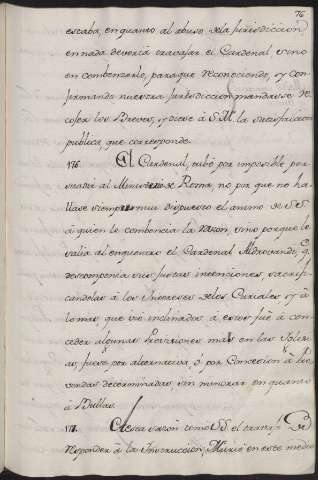 76
estaba, en quanto al abuso de la jurisdiccion,
en nada deveria travajar el Cardenal, sino
en combenzerlo, para que reconociendo, y con
firmando nuestra jurisdiccion mandasse re
coger los Breves, y diese à S. M. la satisfaccion
publica, que corresponde.
176. El Cardenal, tubo por imposible per
suadir al Ministerio de Roma, no por que no ha
llase siempre mui dispuesto el animo de S. S.
à quien le combencia la razon, sino porque le
salia al enquentro el Cardenal Aldrovandi, q.
descomponia sus justas intenciones, sacrifi
candolas à los Intereses de los Curiales, y à
lo mas que vio inclinados à estos fuè à con
ceder algunas Provisiones mas en las Iglesi
as, fuese por alternativa, ò por Concesion à
determinadas, sin minorar en quanto
à Bullas.
177. En esta sazon como S. S. el
responder à la Instruccion, Murió en este medio